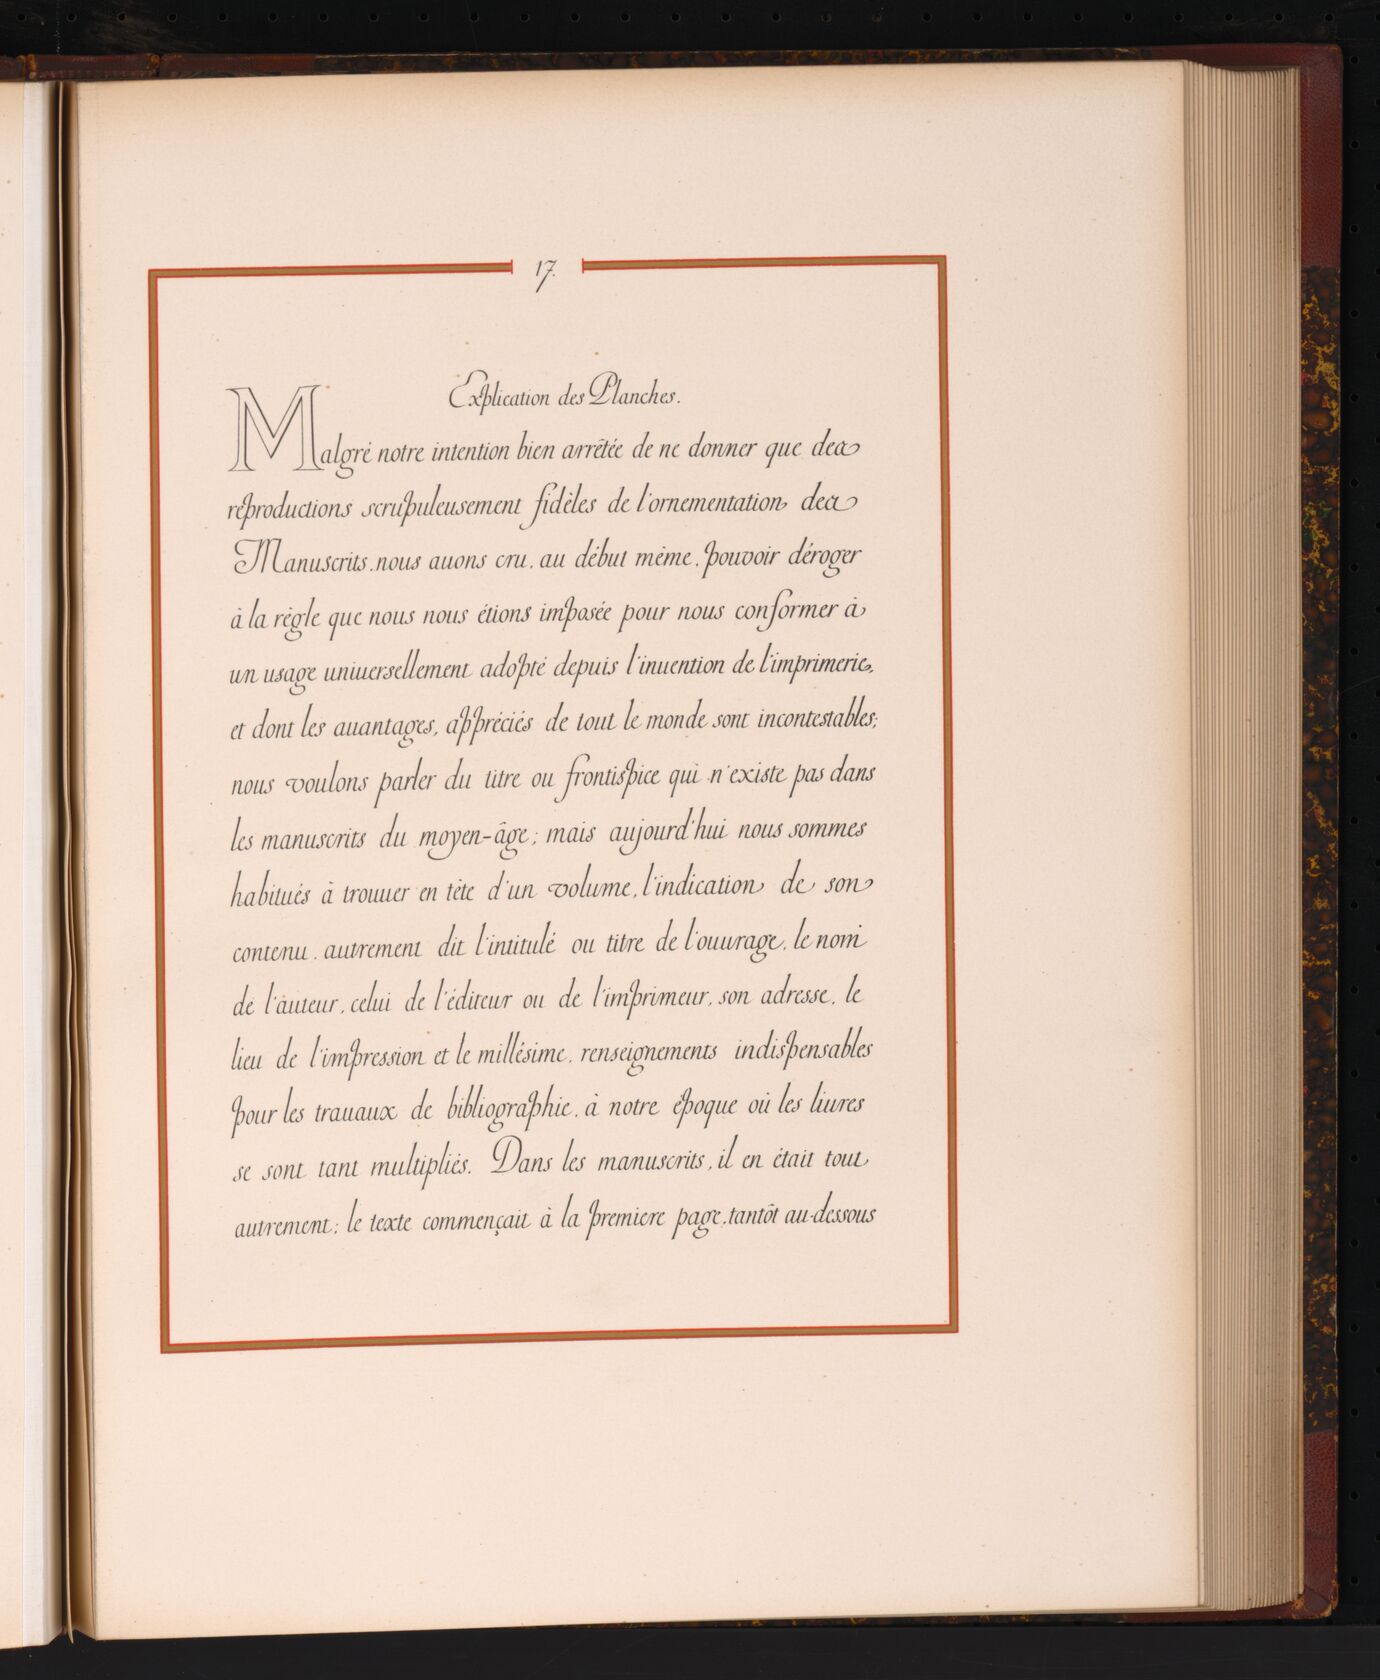 17.
Explication des Planches.
Malgré notre intention bien arrêtée de ne donner que des
reproductions scrupuleusement fidèles de l'ornementation des
Manuscrits, nous auons cru, au début même, pouvoir déroger
à la règle que nous nous étions imposée pour nous conformer à
un usage uniuersellement adopté depuis l'inuention de l'imprimerie,
et dont les auantages, appréciés de tout le monde sont incontestables;
nous voulons parler du titre ou frontispice qui n'existe pas dans
les manuscrits du moyen-âge; mais aujourd'hui nous sommes
habitués à trouuer en tête d'un volume, l'indication de son
contenu, autrement dit l'intitulé ou titre de l'ouurage, le nom
de l'auteur, celui de l'éditeur ou de l'imprimeur, son adresse, le
lieu de l'impression et le millésime, renseignements indispensables
pour les trauaux de bibliographie, à notre époque où les liures
se sont tant multipliés. Dans les manuscrits, il en était tout
autrement; le texte commençait à la premiere page, tantôt au-dessous